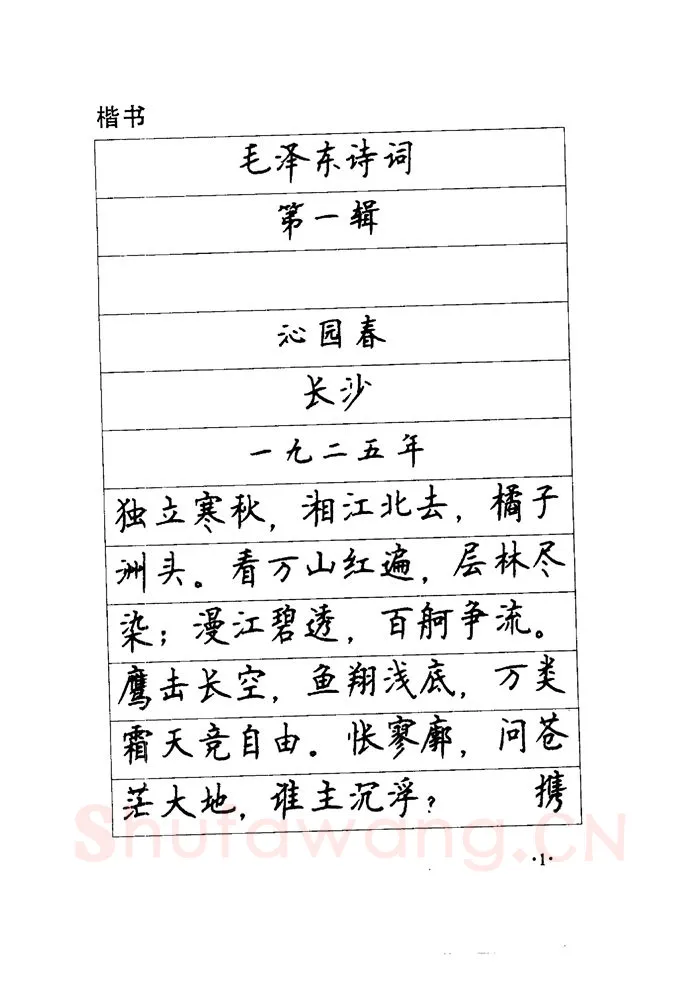 楷书
毛泽东诗词
第一辑
沁园春
长沙
一九二五年
独立寒秋，湘江北去，橘子
洲头。看万山红遍，层林尽
染；漫江碧透，百舸争流。
鹰击长空，鱼翔浅底，万类
霜天竞自由。怅寥廓，问苍
茫大地，谁主沉浮？ 携
Shufawang.CN
·1·